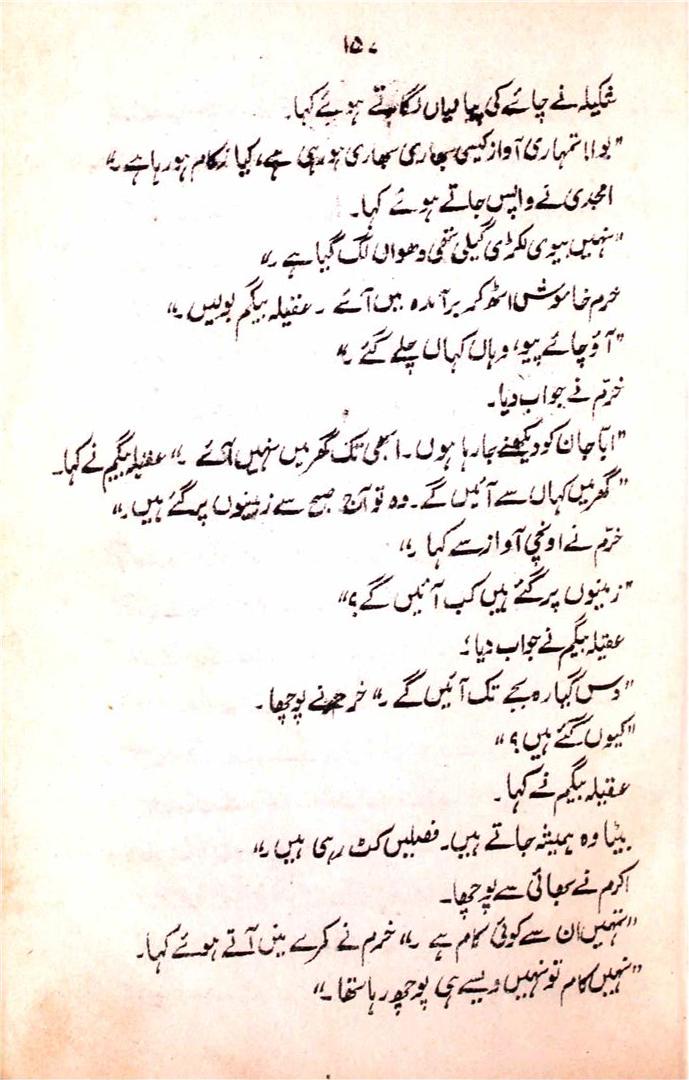 ۱۵۷
شکیلہ نے چائے کی پیالیاں لگاتے ہوئے کہا۔
"بوا! تمہاری آواز کیسی بھاری بھاری ہو رہی ہے، کیا زکام ہو رہا ہے۔"
امجدی نے واپس جاتے ہوئے کہا۔
"نہیں بیوی لکڑی گیلی تھی دھواں لگ گیا ہے۔"
خرم خاموش اٹھ کر برآمدہ میں آئے ۔ عقیلہ بیگم بولیں۔"
"آؤ چائے پیو، وہاں کہاں چلے گئے ۔"
خرّم نے جواب دیا۔
"ابّا جان کو دیکھنے جا رہا ہوں۔ ابھی تک گھر میں نہیں آئے ۔" عقیلہ بیگم نے کہا۔
"گھر میں کہاں سے آئیں گے۔ وہ تو آج صبح سے زمینوں پر گئے ہیں۔"
خرّم نے اونچی آواز سے کہا ۔"
"زمینوں پر گئے ہیں کب آئیں گے؟"
عقیلہ بیگم نے جواب دیا؛
"دس گیارہ بجے تک آئیں گے ۔" خرم نے پوچھا۔
"کیوں گئے ہیں؟"
عقیلہ بیگم نے کہا۔
بیٹا وہ ہمیشہ جاتے ہیں۔ فصلیں کٹ رہی ہیں۔"
اکرم نے بھائی سے پوچھا۔
"تمہیں ان سے کوئی کام ہے ۔" خرم نے کمرے میں آتے ہوئے کہا۔
"نہیں کام تو نہیں ویسے ہی پوچھ رہا تھا ۔"